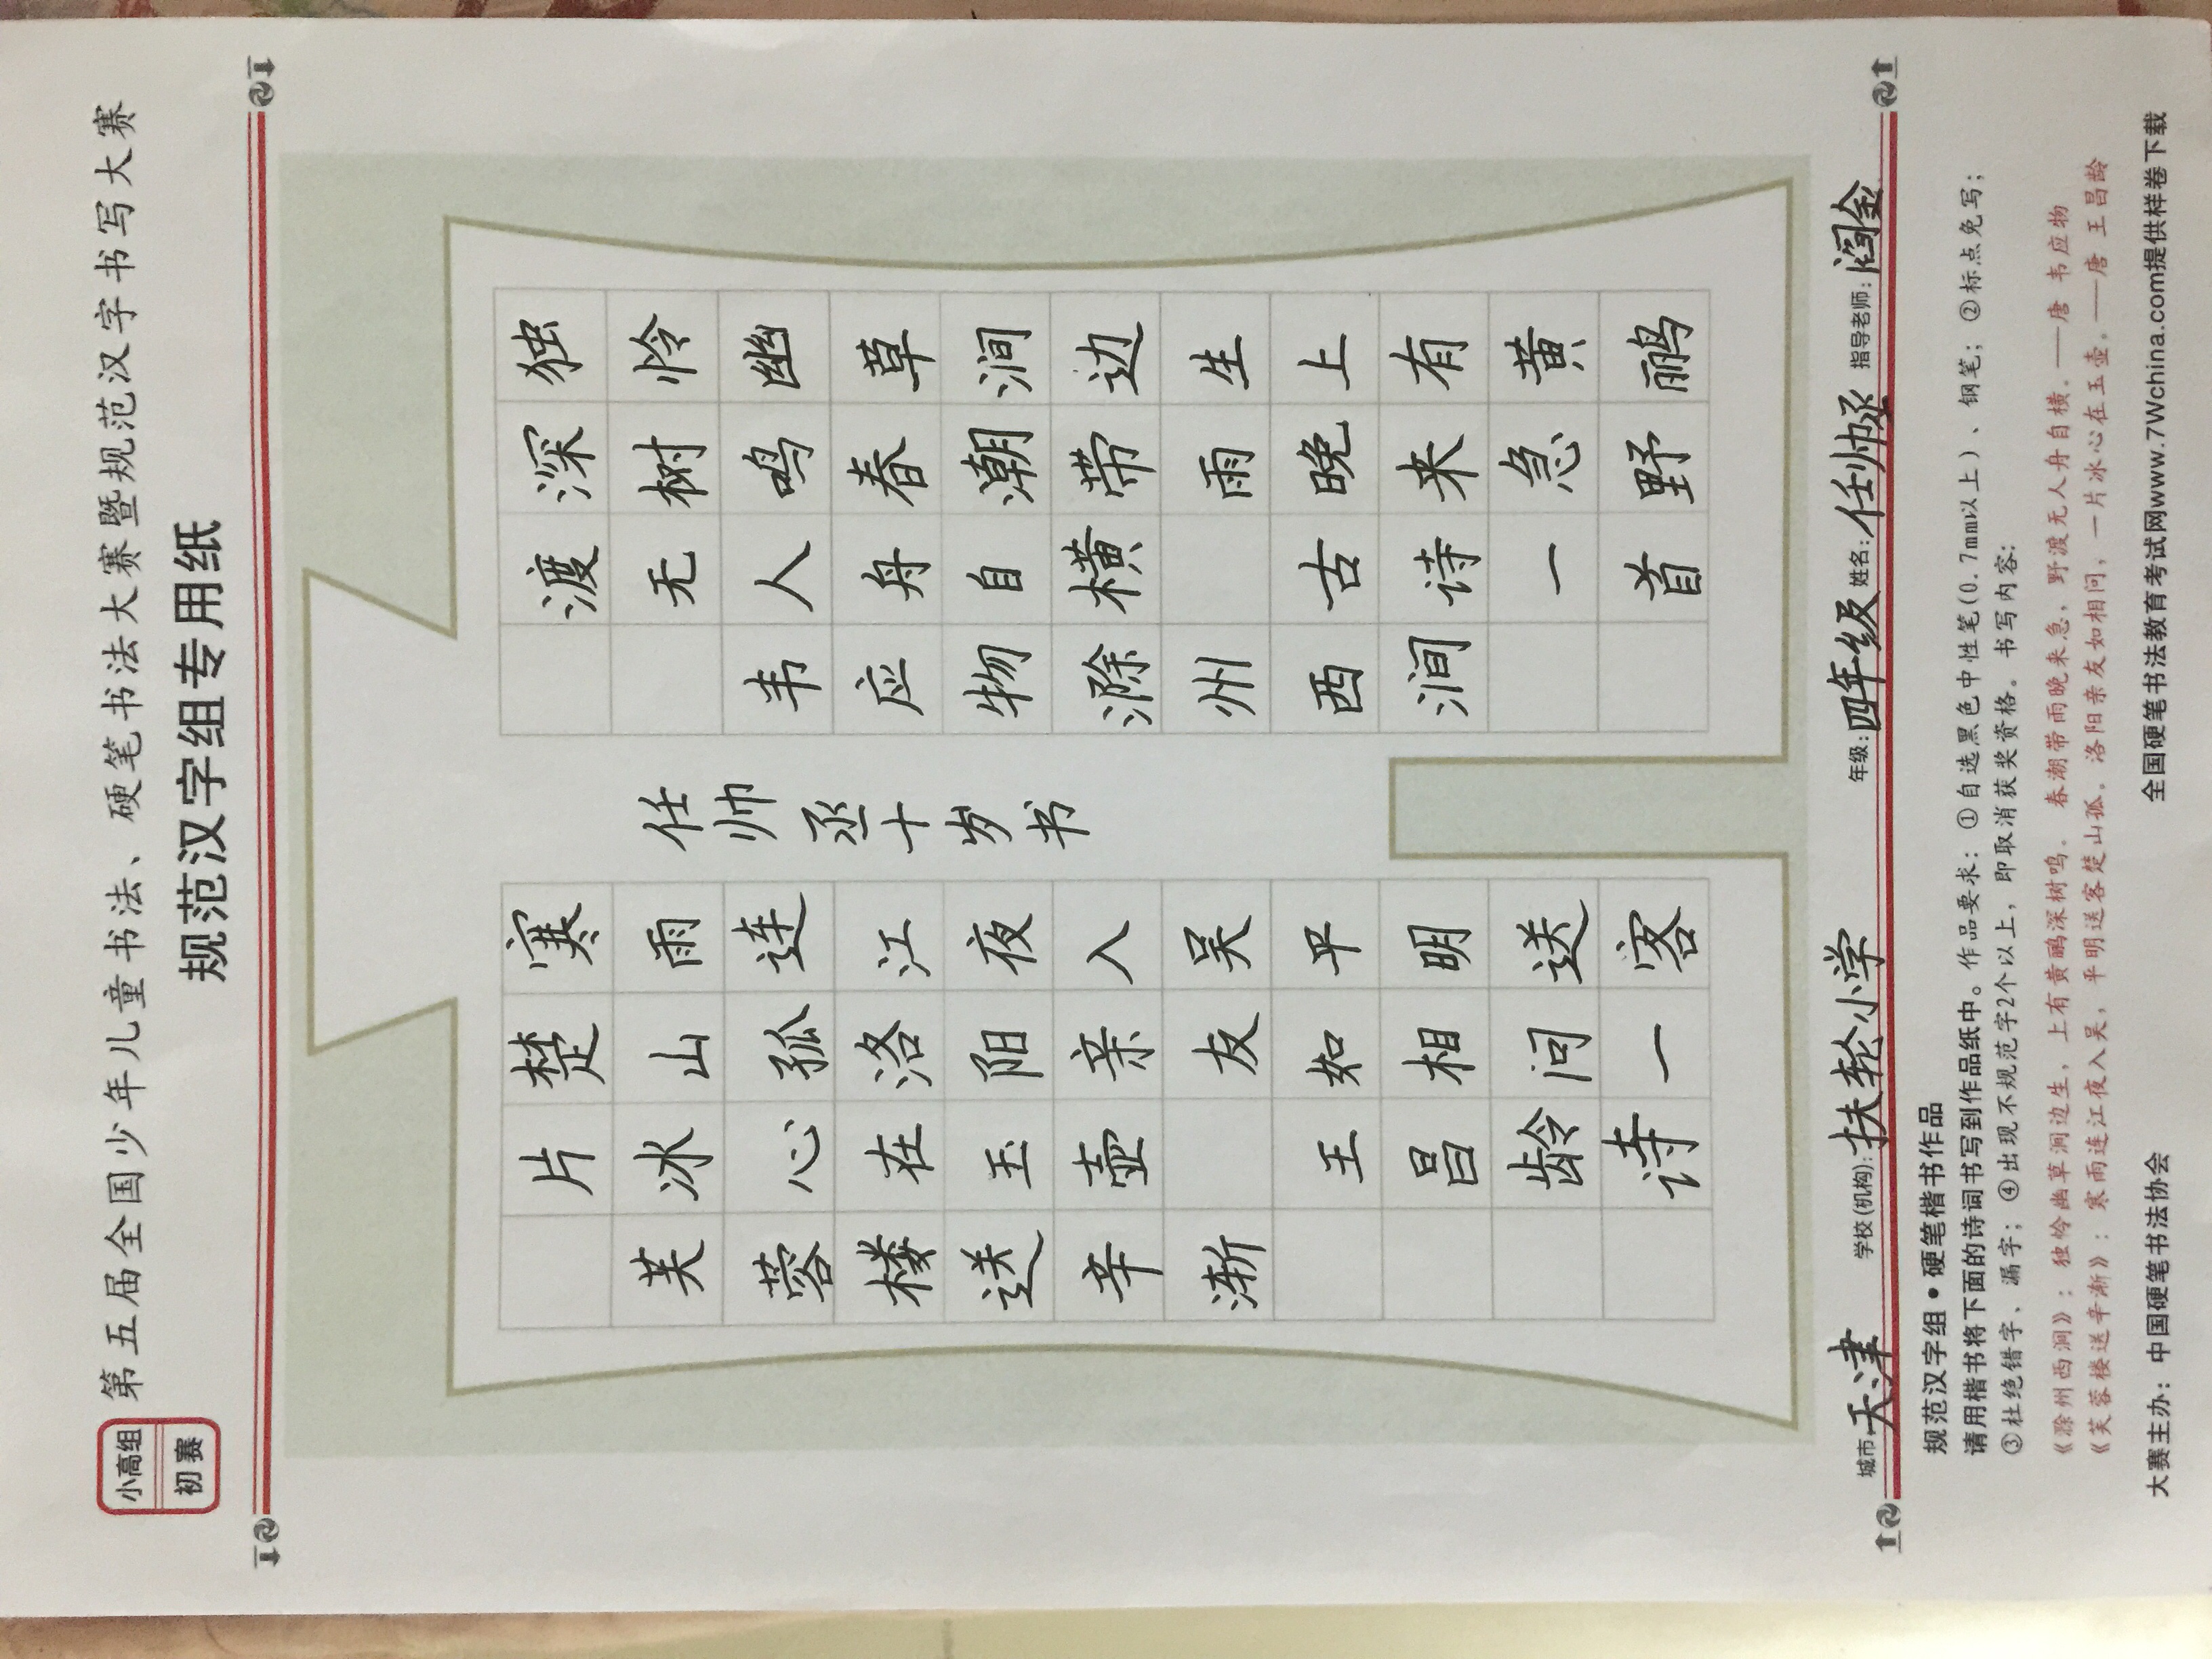 小高组
初赛
第五届全国少年儿童书法、硬笔书法大赛暨规范汉字书写大赛
规范汉字组专用纸
独怜幽草涧边生上有黄鹂
深树鸣春潮带雨晚来急野
渡无人舟自横 古诗一首
韦应物滁州西涧
任帅丞十岁书
寒雨连江夜入吴平明送客
楚山孤洛阳亲友如相问一
片冰心在玉壶 王昌龄诗
芙蓉楼送辛渐
城市:天津 学校(机构):扶轮小学 年级:四年级 姓名:任帅丞 指导老师:阎金
规范汉字组•硬笔楷书作品
请用楷书将下面的诗词书写到作品纸中。作品要求：①自选黑色中性笔(0.7mm以上)、钢笔；②标点免写；
③杜绝错字、漏字；④出现不规范字2个以上，即取消获奖资格。书写内容:
《滁州西涧》：独怜幽草涧边生，上有黄鹂深树鸣。春潮带雨晚来急，野渡无人舟自横。——唐 韦应物
《芙蓉楼送辛渐》：寒雨连江夜入吴，平明送客楚山孤。洛阳亲友如相问，一片冰心在玉壶。——唐 王昌龄
大赛主办：中国硬笔书法协会 全国硬笔书法教育考试网www.7Wchina.com提供样卷下载